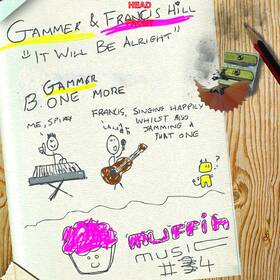 GAMMER & FRANCIS HILL
"IT WILL BE ALRIGHT"
GAMMER
B. ONE MORE
ME, SPIKY
FRANCIS, SINGING HAPPILY
WHILST ALSO
JAMMING A
PHAT ONE
LALALA
?
MUFFIN
MUSIC
#34